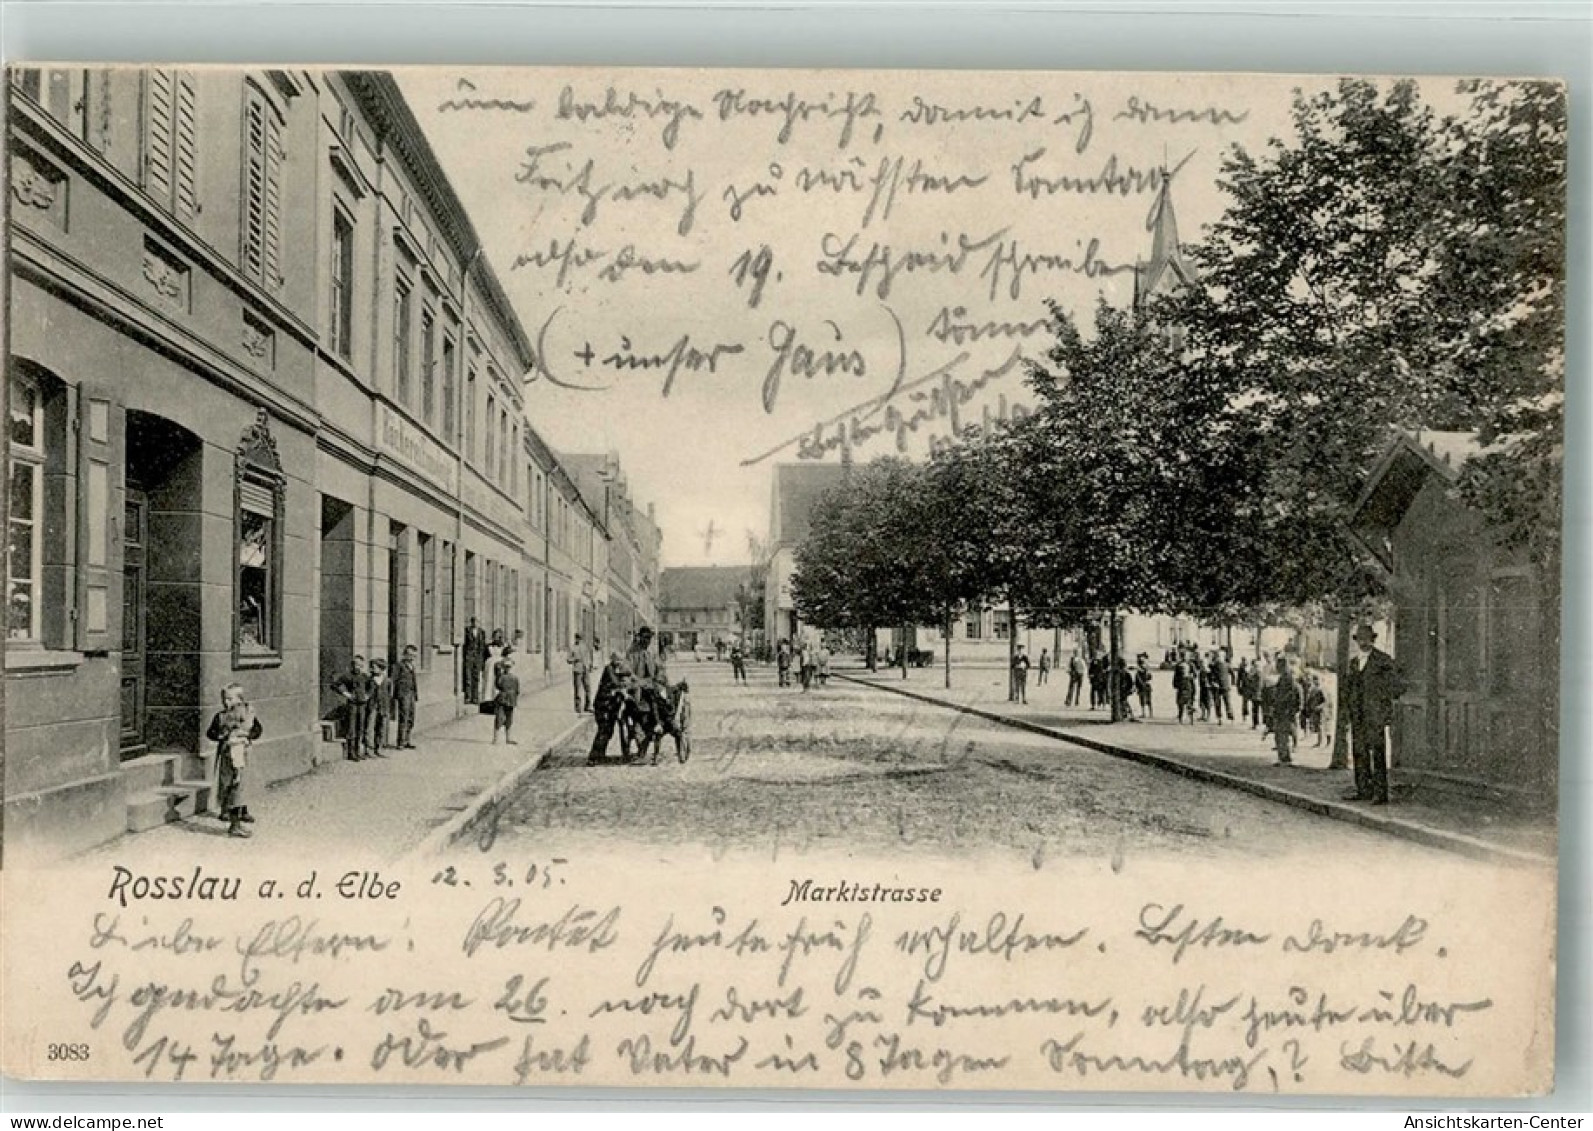 um baldige Nachricht, damit ich dann
Fritz noch zu nächsten Sonntag
also den 19. Bescheid schreiben
(+ unser Haus) könnte
Rosslau a. d. Elbe 12. 3. 05.
Marktstrasse
Liebe Eltern! Packet heute früh erhalten. Besten Dank.
Ich gedachte am 26. nach dort zu kommen, also heute über
14 Tage. Oder hat Vater in 8 Tagen Sonntag,? Bitte
3083
Ansichtskarten-Center